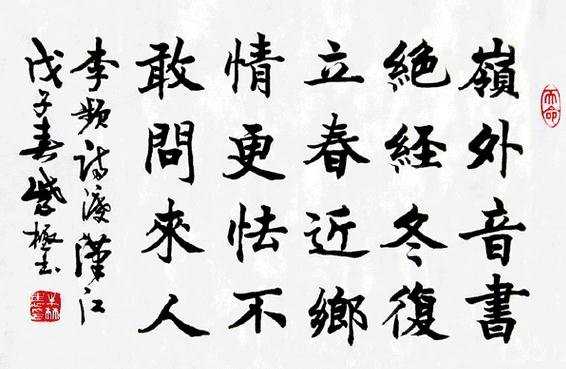 嶺外音書
絶経冬復
立春近鄉
情更怯不
敢問來人
李頻詩渡漢江
戊子春紫極书